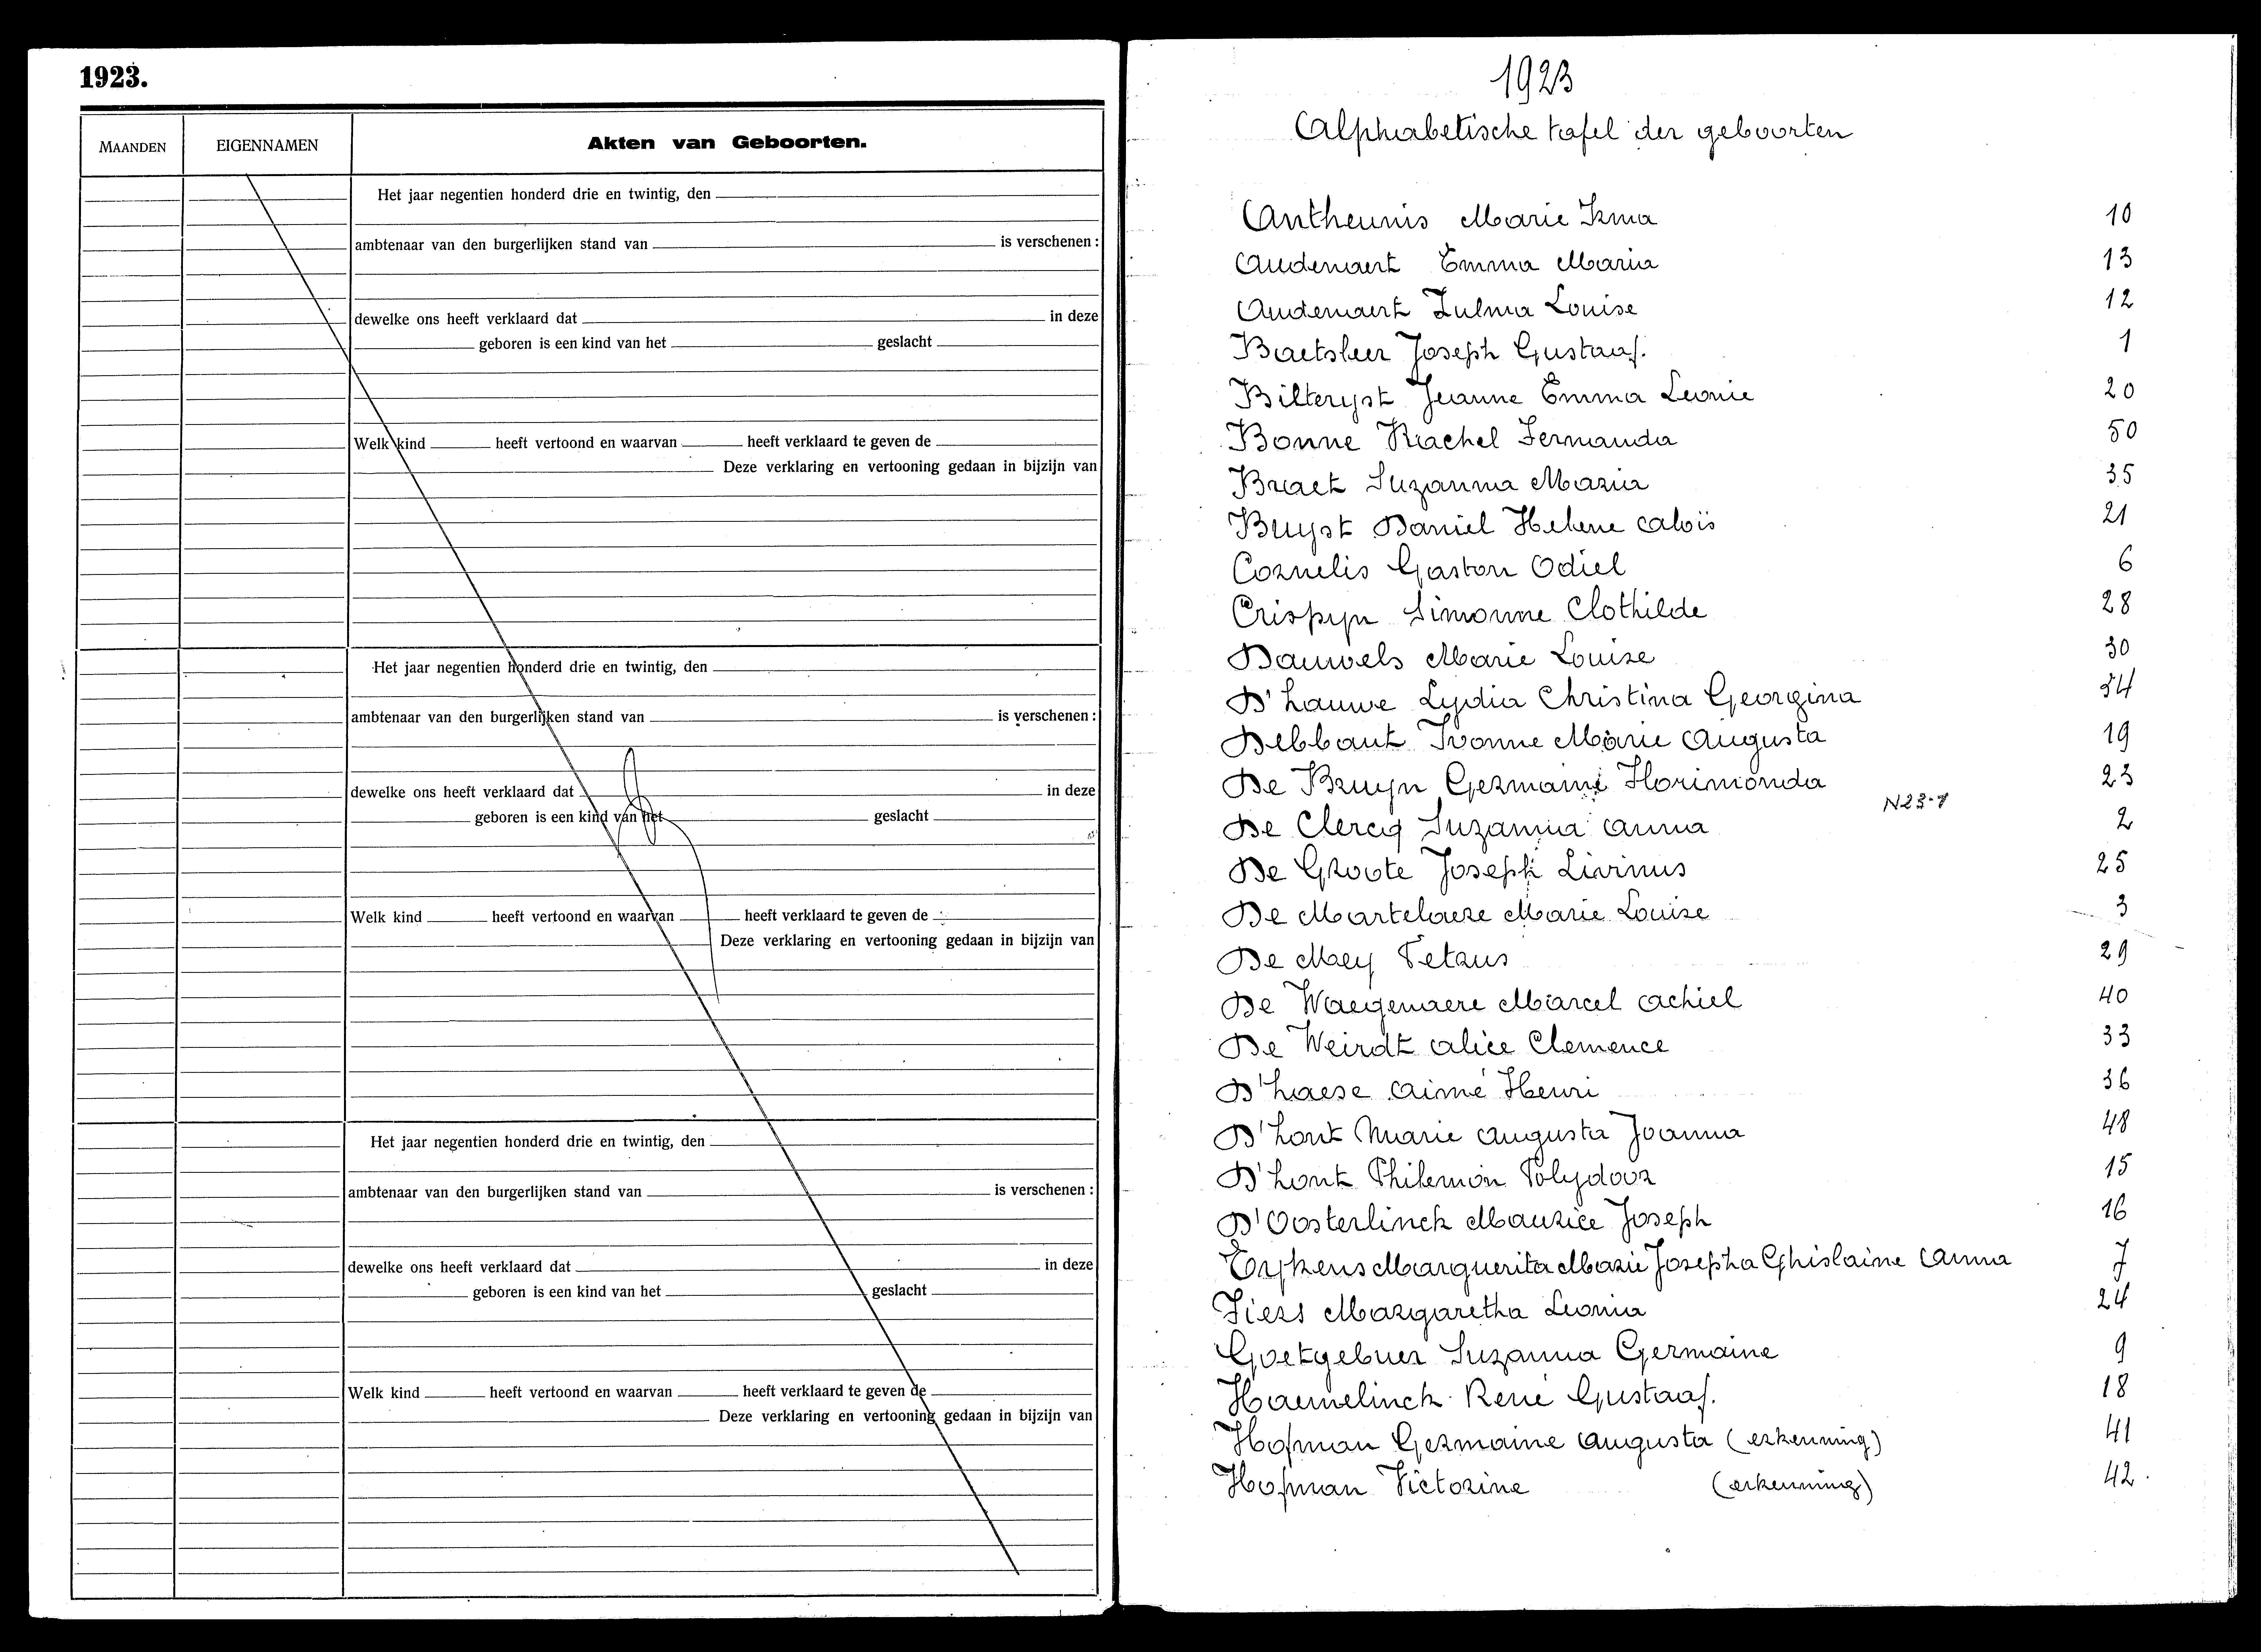 1923.
MAANDEN EIGENNAMEN Akten van Geboorten.
Het jaar negentien honderd drie en twintig, den
ambtenaar van den burgerlijken stand van is verschenen :
dewelke ons heeft verklaard dat in deze
geboren is een kind van het geslacht
Welk kind heeft vertoond en waarvan heeft verklaard te geven de
Deze verklaring en vertooning gedaan in bijzijn van
Het jaar negentien honderd drie en twintig, den
ambtenaar van den burgerlijken stand van is verschenen :
dewelke ons heeft verklaard dat in deze
geboren is een kind van het geslacht
Welk kind heeft vertoond en waarvan heeft verklaard te geven de
Deze verklaring en vertooning gedaan in bijzijn van
Het jaar negentien honderd drie en twintig, den
ambtenaar van den burgerlijken stand van is verschenen :
dewelke ons heeft verklaard dat in deze
geboren is een kind van het geslacht
Welk kind heeft vertoond en waarvan heeft verklaard te geven de
Deze verklaring en vertooning gedaan in bijzijn van
1923
Alphabetische tafel der geboorten
Antheunis Marie Irma 10
Audenaert Emma Maria 13
Audenaert Zulma Louise 12
Baetsleer Joseph Gustaaf. 1
Bilteryst Jeanne Emma Leonie 20
Bonne Rachel Fernanda 50
Braet Suzanna Maria 35
Buyst Daniel Helene Aloïs 21
Cornelis Gaston Odiel 6
Crispyn Simonne Clothilde 28
Dauwels Marie Louise 30
D'hauwe Lydia Christina Georgina 34
Debbaut Ivonne Marie Augusta 19
De Bruyn Germaine Florimonda 23
N23-1
De Clercq Suzanna Anna 2
De Groote Joseph Livinus 25
De Martelaere Marie Louise 3
De Mey Petrus 29
De Waegenaere Marcel Achiel 40
De Weirdt Alice Clemence 33
D'haese Aimé Henri 36
D'hont Marie Augusta Joanna 48
D'hont Philemon Polydoor 15
D'Oosterlinck Maurice Joseph 16
Erpkens Marguerita Marie Josepha Ghislaine Anna 7
Fiers Margaretha Leonia 24
Goetgebuer Suzanna Germaine 9
Haemelinck René Gustaaf. 18
Hofman Germaine Augusta (erkenning) 41
Hofman Victorine (erkenning) 42.